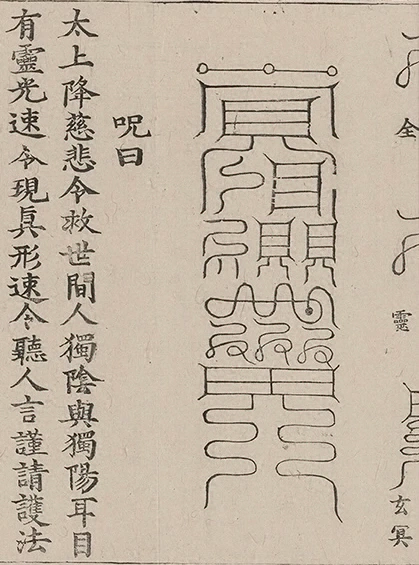 全
靈
玄冥
呪曰
太上降慈悲令救世間人獨陰與獨陽耳目
有靈光速令現眞形速令聽人言謹請護法